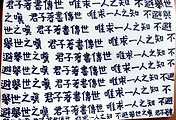 舉世之嘆 君子著書傳世 唯求一人之知 不避
舉世之嘆 君子著書傳世 唯求一人之知 不避
舉世之嘆 君子著書傳世 唯求一人之知 不避
舉世之嘆 君子著書傳世 唯求一人之知 不避
舉世之嘆 君子著書傳世 唯求一人之知 不避
舉世之嘆 君子著書傳世 唯求一人之知 不避
舉世之嘆 君子著書傳世 唯求一人之知